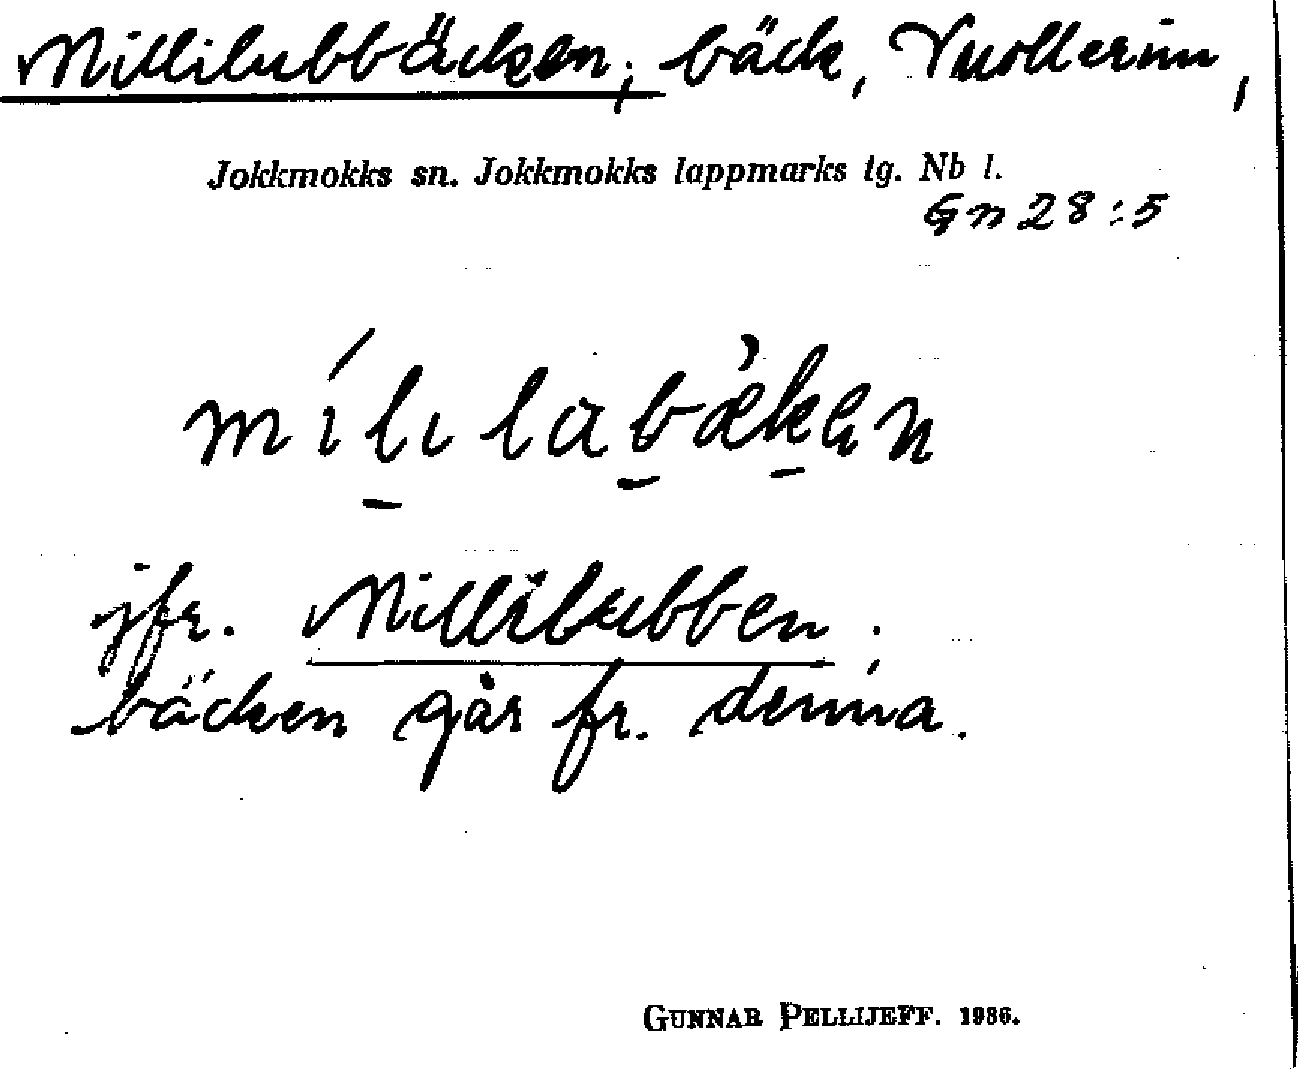 Millilubbäcken; bäck, Vuollerim,
Jokkmokks sn. Jokkmokks lappmarks tg. Nb l.
Gn 28:5
mílılabæ̀ken
jfr. Millilubben;
bäcken går fr. denna.
GUNNAR PELLIJEFF. 1936.